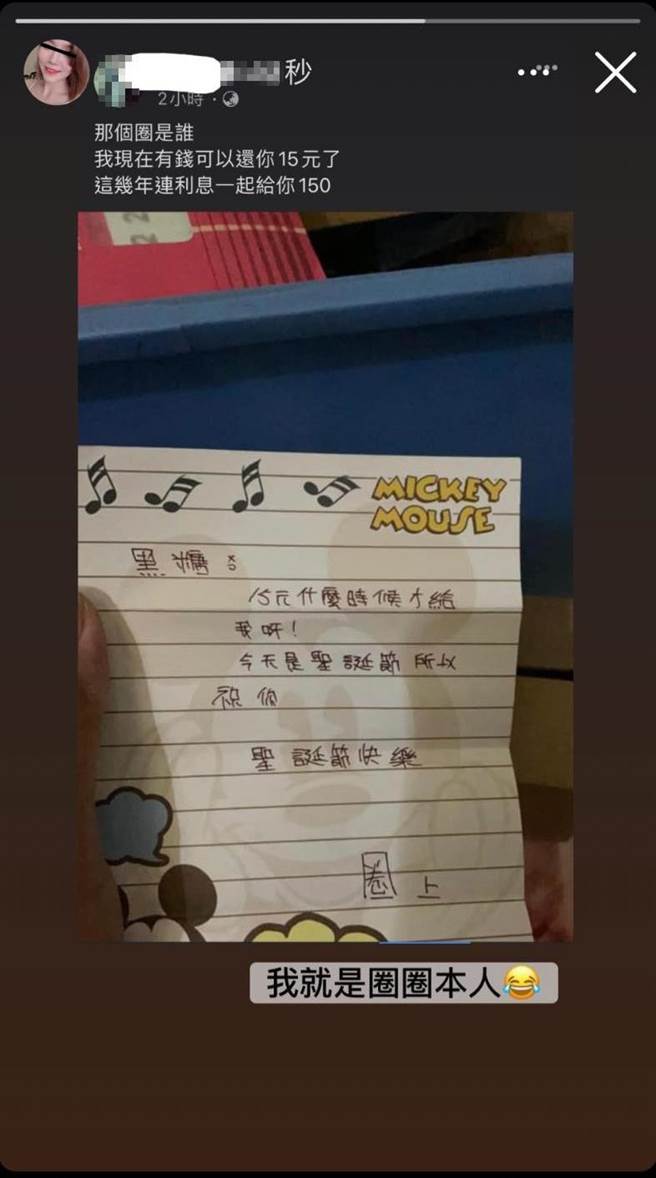 秒
2小時
那個圈是誰
我現在有錢可以還你15元了
這幾年連利息一起給你150
MICKEY
MOUSE
黑糖:
15元什麼時候才給
我呀!
今天是聖誕節所以
祝你
聖誕節快樂
圈 上
我就是圈圈本人😂